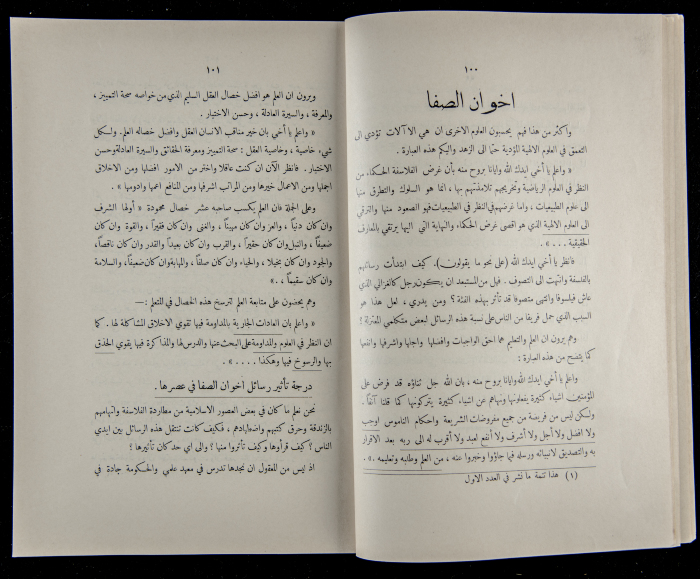 ١٠٠
اخوان الصفا
واكثر من هذا فهم يحسبون العلوم الاخرى ان هي الا آلات تؤدي الى
التعمق في العلوم الالهية المؤدية حتماً الى الزهد واليكم هذه العبارة .
« واعلم يا أخي ايدك الله وايانا بروح منه بأن غرض الفلاسفة الحكماء من
النظر في العلوم الرياضية وتخريجهم تلامذتهم بها ، انما هو السلوك والتطرق منها
الى علوم الطبيعيات ، واما غرضهم في النظر في الطبيعيات فهو الصعود منها والترقي
الى العلوم الالهية الذي هو اقصى غرض الحكماء والنهاية التي اليها يرتقي بالمعارف
الحقيقية . . . » .
فانظر يا أخي ايدك الله (على نحو ما يقولون) . كيف ابتدأت رسائلهم
بالفلسفة وانتهت الى التصوف . فهل من المستبعد ان يكون رجل كالغزالي الذي
عاش فيلسوفا وانتهى متصوفا قد تأثر بهذه الفئة ؟ ومن يدري ، لعل هذا هو
السبب الذي حمل فريقا من الناس على نسبة هذه الرسائل لبعض متكلمي المعتزلة ؟
وهم يرون ان العلم والتعليم هما احق الواجبات وافضلها واجلها واشرفها وانفعها
كما يتضح من هذه العبارة :
واعلم يا أخي ايدك الله وايانا بروح منه ، بان الله جل ثناؤه قد فرض على
المؤمنين اشياء كثيرة يفعلونها ونهاهم عن اشياء كثيرة يتركونها كما قلنا آنفاً .
ولكن ليس من فريضة من جميع مفروضات الشريعة واحكام الناموس اوجب
ولا افضل ولا أجل ولا أشرف ولا أنفع لعبد ولا أقرب له الى ربه بعد الاقرار
به والتصديق لانبيائه ورسله فيما جاؤوا وخبروا عنه ، من العلم وطلبه وتعليمه . » .
(١) هذا تتمة ما نشر في العدد الاول
١٠١
ويرون ان العلم هو افضل خصال العقل السليم الذي من خواصه صحة التمييز ،
والمعرفة ، والسيرة العادلة ، وحسن الاختيار .
« واعلم يا أخي بان خير مناقب الانسان العقل وافضل خصاله العلم . ولكل
شيء خاصية ، وخاصية العقل : صحة التمييز ومعرفة الحقائق والسيرة العادلة وحسن
الاختيار . فانظر الآن ان كنت عاقلا واختر من الامور افضلها ومن الاخلاق
اجملها ومن الاعمال خيرها ومن المراتب اشرفها ومن المنافع اعمها وادومها » .
وعلى الجملة فان العلم يكسب صاحبه عشر خصال محمودة « أولها الشرف
وان كان دنياً ، والعز وان كان مهيناً ، والغنى وان كان فقيراً ، والقوة وان كان
ضعيفاً ، والنبل وان كان حقيراً ، والقرب وان كان بعيداً والقدر وان كان ناقصاً ،
والجود وان كان بخيلا ، والحياء وان كان صلفاً ، والمهابة وان كان ضعيناً ، والسلامة
وان كان سقيماً » ، . »
وهم يحضون على متابعة العلم لترسخ هذه الخصال في المتعلم : —
« واعلم بان العادات الجارية بالمداومة فيها تقوي الاخلاق المشاكلة لها . كما
ان النظر في العلوم والمداومة على البحث عنها والدرس لها والمذاكرة فيها يقوي الحذق
بها والرسوخ فيها وهكذا . . . . » .
درجة تأثير رسائل اخوان الصفا في عصرها .
نحن نعلم ما كان في بعض العصور الاسلامية من مطاردة الفلاسفة واتهامهم
بالزندقة وحرق كتبهم واضطهادهم ، فكيف كانت تنتقل هذه الرسائل بين ايدي
الناس ؟ كيف قرأوها وكيف تأثروا منها ؟ والى اي حد كان تأثيرها ؟
اذ ليس من المعقول ان نجدها تدرس في معهد علمي والحكومة جادة في